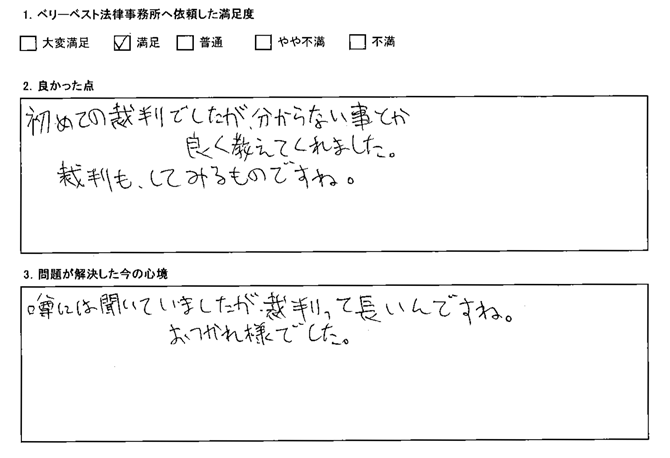 1. ベリーベスト法律事務所へ依頼した満足度
□ 大変満足 ☑ 満足 □ 普通 □ やや不満 □ 不満
2. 良かった点
初めての裁判でしたが、分からない事とか
良く教えてくれました。
裁判も、してみるものですね。
3. 問題が解決した今の心境
噂には聞いていましたが、裁判って長いんですね。
おつかれ様でした。